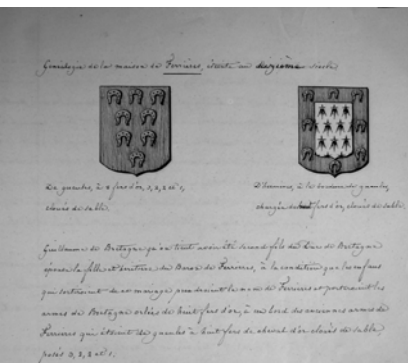 Généalogie de la maison de Ferrières, éteinte au seizième siècle
De gueules, à 8 fers d'or, 3, 2, 2 et 1,
cloués de sable.
D'hermines, à la bordure de gueules,
chargée de huit fers d'or, cloués de sable.
Guillaume de Bretagne qu'on croit avoir été second fils du Duc de Bretagne
épousa la fille et héritière du Baron de Ferrières, à la condition que les enfans
qui sortiraient de ce mariage, prendraient le nom de Ferrières et porteraient les
armes de Bretagne orlées de huit fers d'or, à un bord des anciennes armes de
Ferrières qui étaient de gueules à huit fers de cheval d'or cloués de sable,
posés 3, 2, 2 et 1.